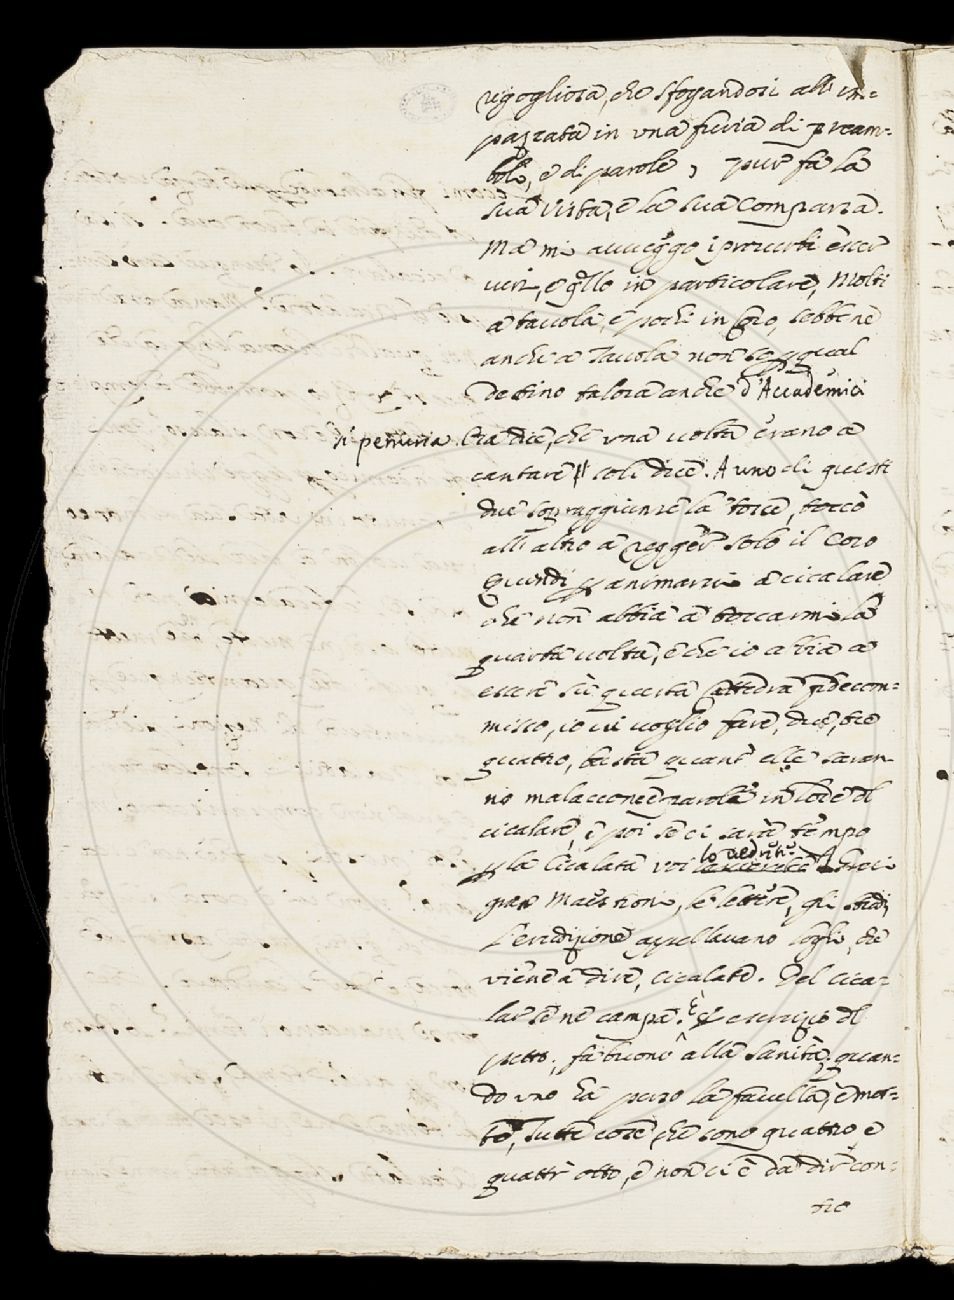 rigogliosa, che sfogandosi all' im=
pazzata in una furia di pream=
boli, e di parole, pur fa la
sua vista, e la sua comparsa.
Ma mi avveggo i proverbi esser
veri, e qllo in particolare, Molti
a tavola, e pochi in Coro, sebbene
anche a Tavola non so p qual
destino talora anche d'Accademici
si penuria. Era dice, che una volta erano a
cantare soli dice. A uno di questi
due sopraggiunse la tosse, toccò
all' altro a regger solo il Coro
Quindi p animarsi a cicalare
che non abbia a toccarmi la
quarta volta, e che io abbia a
essere sù questa Cattedra fidecom=
misso, io vi voglio fare, due, tre
quattro, basta quant' elle saran=
no malacconce parole in lode dl
cicalare, e poi se ci sarà tempo
p la Cicalata voi lo vedrete. I Greci
gran Maestroni, le lettere, gli studi,
l'erudizione appellavano loghi, che
viene a dire, cicalate. Del cica=
lar se ne campa. È esercizio dl
petto, fa buono alla sanità, quan=
do uno ha perso la favella, è mor=
to, Tutte cose che sono quattro e
quattr' otto, e non ci è da dir con=
tro